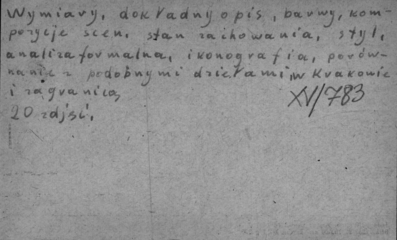 Wymiary, dokładny opis, barwy, kom-
pozycje scen, stan zachowania, styl,
analiza formalna, ikonografia, porów-
nanie z podobnymi dziełami, w Krakowie
i zagranicą,
XV/783
20 zdjęć.